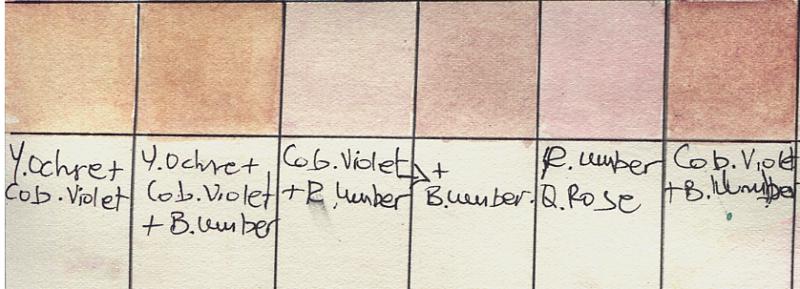 Y.Ochre+
Cob.Violet
Y.Ochre+
Cob.Violet
+ B.umber
Cob.Violet
+ R.umber
+
B.umber.
R.umber
Q.Rose
Cob.Violet
+B.Umber